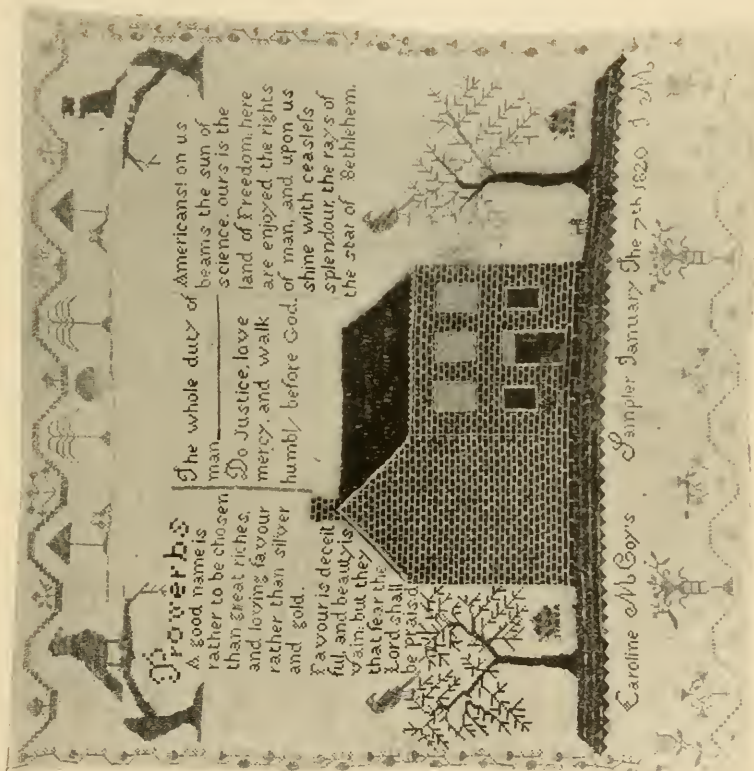 Proverbs
A good name is
rather to be chosen
than great riches,
and loving favour
rather than silver
and gold.
Favour is deceit
ful, and beauty is
vain; but they
that fear the
Lord shall
be Praisd
The whole duty of
man
Do Justice, love
mercy, and walk
humbly before God.
Americans! on us
beams the sun of
science, ours is the
land of Freedom, here
are enjoyed the rights
of man, and upon us
shine with ceaseleſs
splendour, the rays of
the star of Bethlehem.
Caroline McCoy's Sampler January The 7th 1820 J M